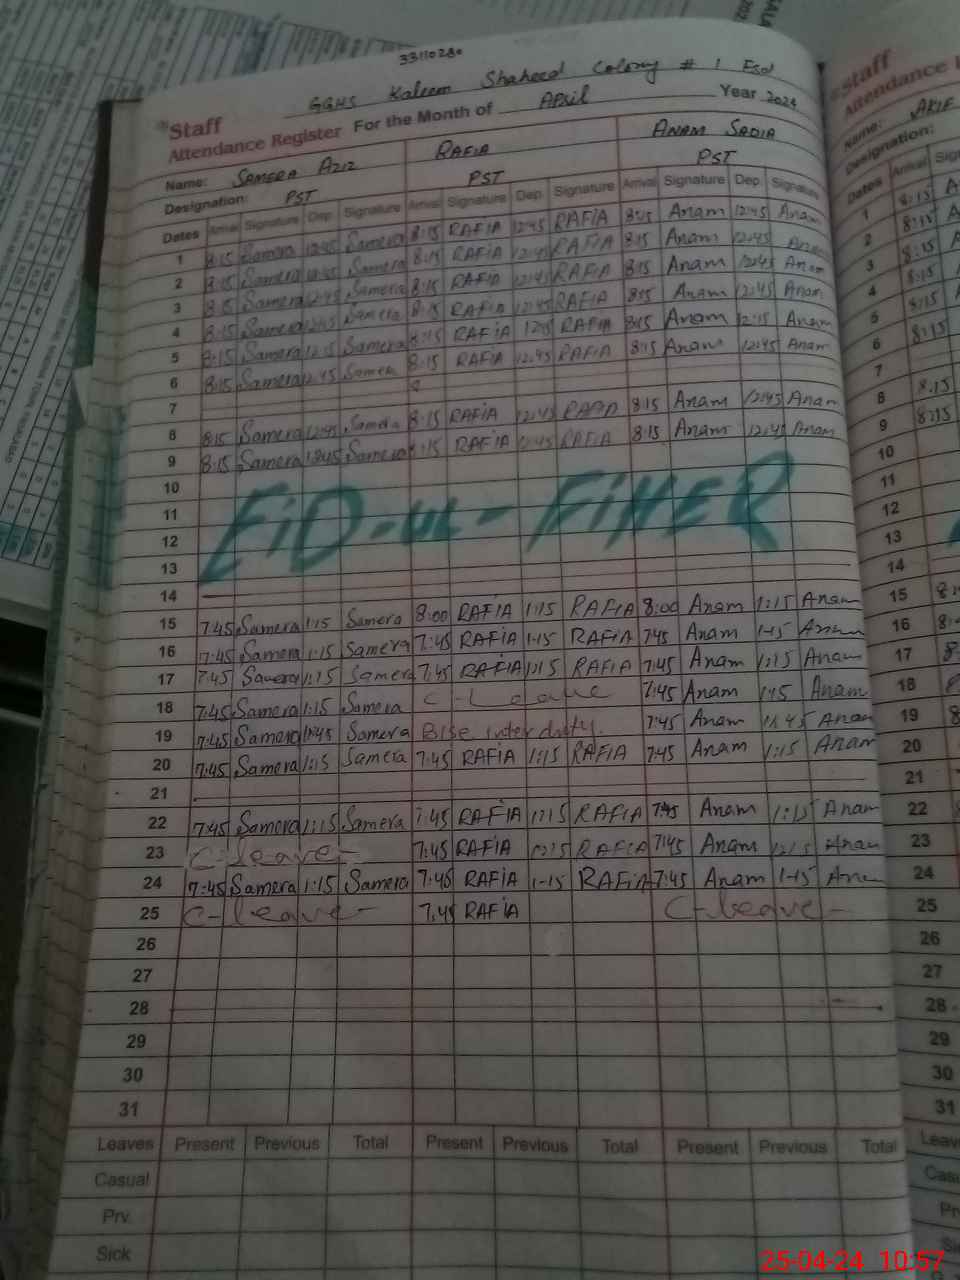 33110280
GGHS Kaleem Shaheed Colony # 1 Fsd
Staff
Attendance Register For the Month of April Year 2024
Name: SAMERA AZIZ RAFIA ANAM SADIA
Designation: PST PST PST
Dates Arrival Signature Dep. Signature Arrival Signature Dep. Signature Arrival Signature Dep. Signature
1 8:15 Samera 12:45 Samera 8:15 RAFIA 12:45 RAFIA 8:15 Anam 12:45 Anam
2 8:15 Samera 12:45 Samera 8:15 RAFIA 12:45 RAFIA 8:15 Anam 12:45 Anam
3 8:15 Samera 12:45 Samera 8:15 RAFIA 12:45 RAFIA 8:15 Anam 12:45 Anam
4 8:15 Samera 12:45 Samera 8:15 RAFIA 12:45 RAFIA 8:15 Anam 12:45 Anam
5 8:15 Samera 12:15 Samera 8:15 RAFIA 12:45 RAFIA 8:15 Anam 12:15 Anam
6 8:15 Samera 12:45 Samera 8:15 RAFIA 12:45 RAFIA 8:15 Anam 12:45 Anam
7
8 8:15 Samera 12:45 Samera 8:15 RAFIA 12:45 RAFIA 8:15 Anam 12:45 Anam
9 8:15 Samera 12:45 Samera 8:15 RAFIA 12:45 RAFIA 8:15 Anam 12:45 Anam
10
11 EID-UL-FITER
12
13
14
15 7:45 Samera 1:15 Samera 8:00 RAFIA 1:15 RAFIA 8:00 Anam 1:15 Anam
16 7:45 Samera 1:15 Samera 7:45 RAFIA 1:15 RAFIA 7:45 Anam 1:15 Anam
17 7:45 Samera 1:15 Samera 7:45 RAFIA 1:15 RAFIA 7:45 Anam 1:15 Anam
18 7:45 Samera 1:15 Samera C-Leave 7:45 Anam 1:15 Anam
19 7:45 Samera 11:45 Samera Bise inter duty. 7:45 Anam 11:45 Anam
20 7:45 Samera 1:15 Samera 7:45 RAFIA 1:15 RAFIA 7:45 Anam 1:15 Anam
21
22 7:45 Samera 1:15 Samera 7:45 RAFIA 1:15 RAFIA 7:45 Anam 1:15 Anam
23 C-leave- 7:45 RAFIA 12:15 RAFIA 7:45 Anam 12:15 Anam
24 7:45 Samera 1:15 Samera 7:45 RAFIA 1:15 RAFIA 7:45 Anam 1:15 Anam
25 C-leave- 7:45 RAFIA C-leave-
26
27
28
29
30
31
Leaves Present Previous Total Present Previous Total Present Previous Total
Casual
Prv.
Sick
Staff
Attendance
Name:
Designation:
Dates Arrival
1 8:15
2 8:15
3 8:15
4 8:15
5 8:15
6 8:15
7
8 8:15
9 8:15
10
11
12
13
14
15
16
17
18
19
20
21
22
23
24
25
26
27
28
29
30
31
25-04-24 10:57